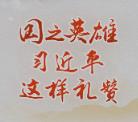 国之英雄
习近平
这样礼赞